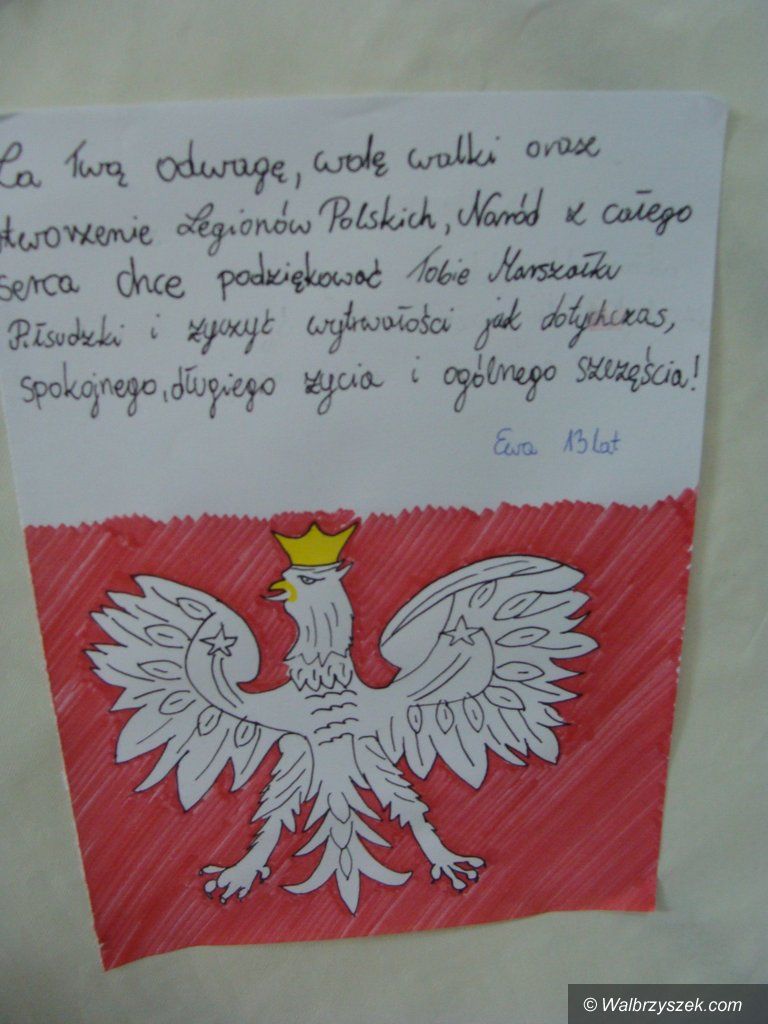 Za Twą odwagę, wolę walki oraz
stworzenie Legionów Polskich, Naród z całego
serca chce podziękować Tobie Marszałku
Piłsudzki i zyczyć wytrwałości jak dotychczas,
spokojnego, długiego zycia i ogólnego szczęścia!
Ewa 13 lat
© Walbrzyszek.com